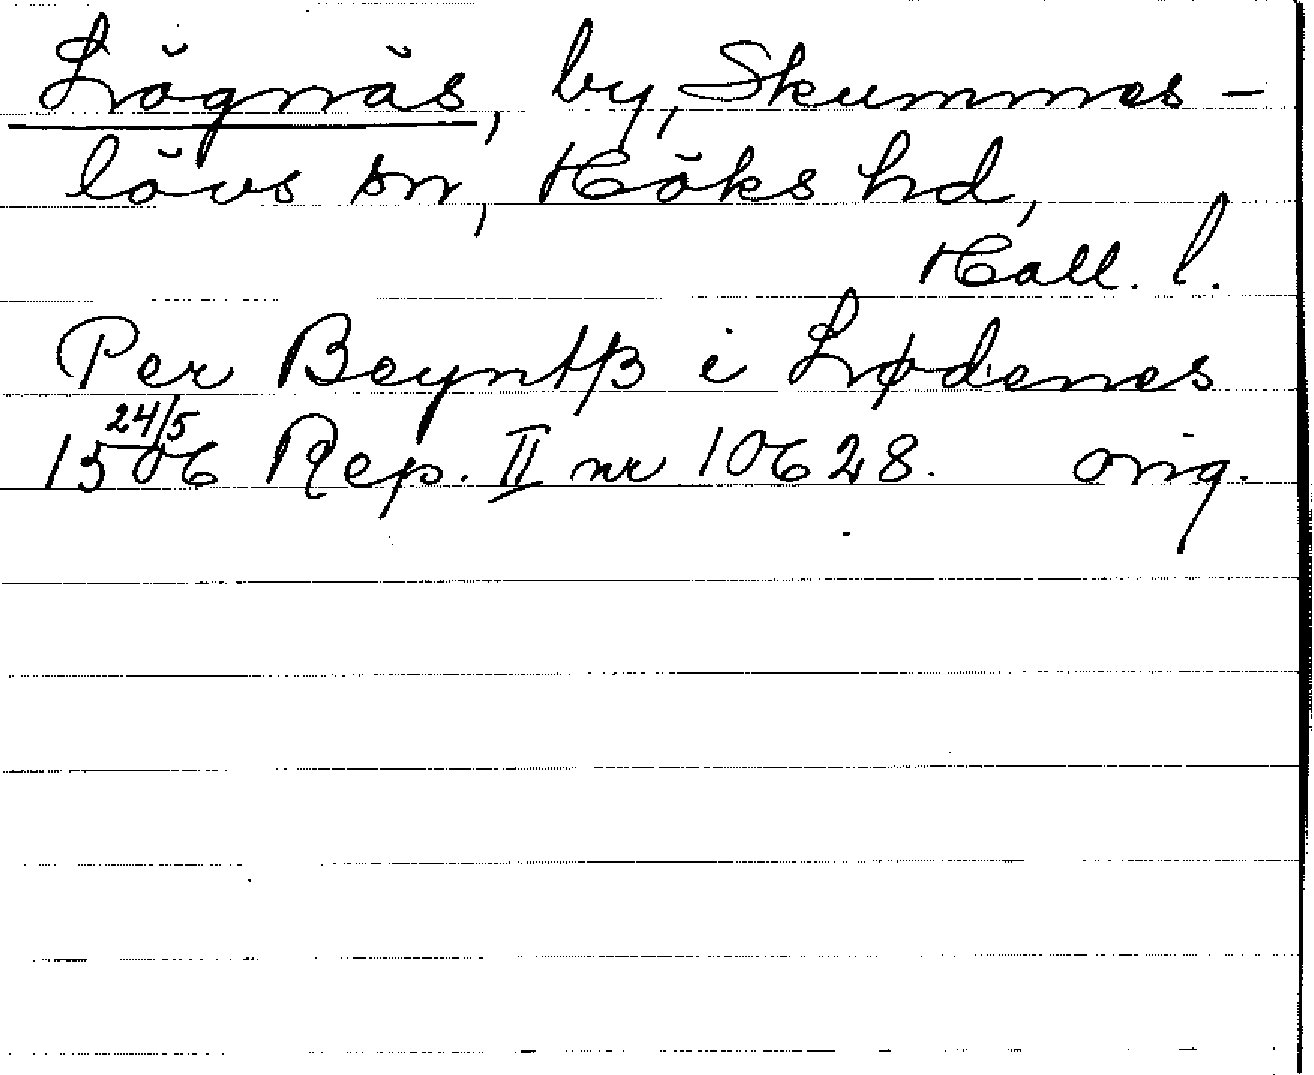 Lögnäs, by, Skummes-
lövs sn, Höks hd,
Hall. l.
Per Beyntß i Lødenes
24/5
1506 Rep. II nr 10628. orig.